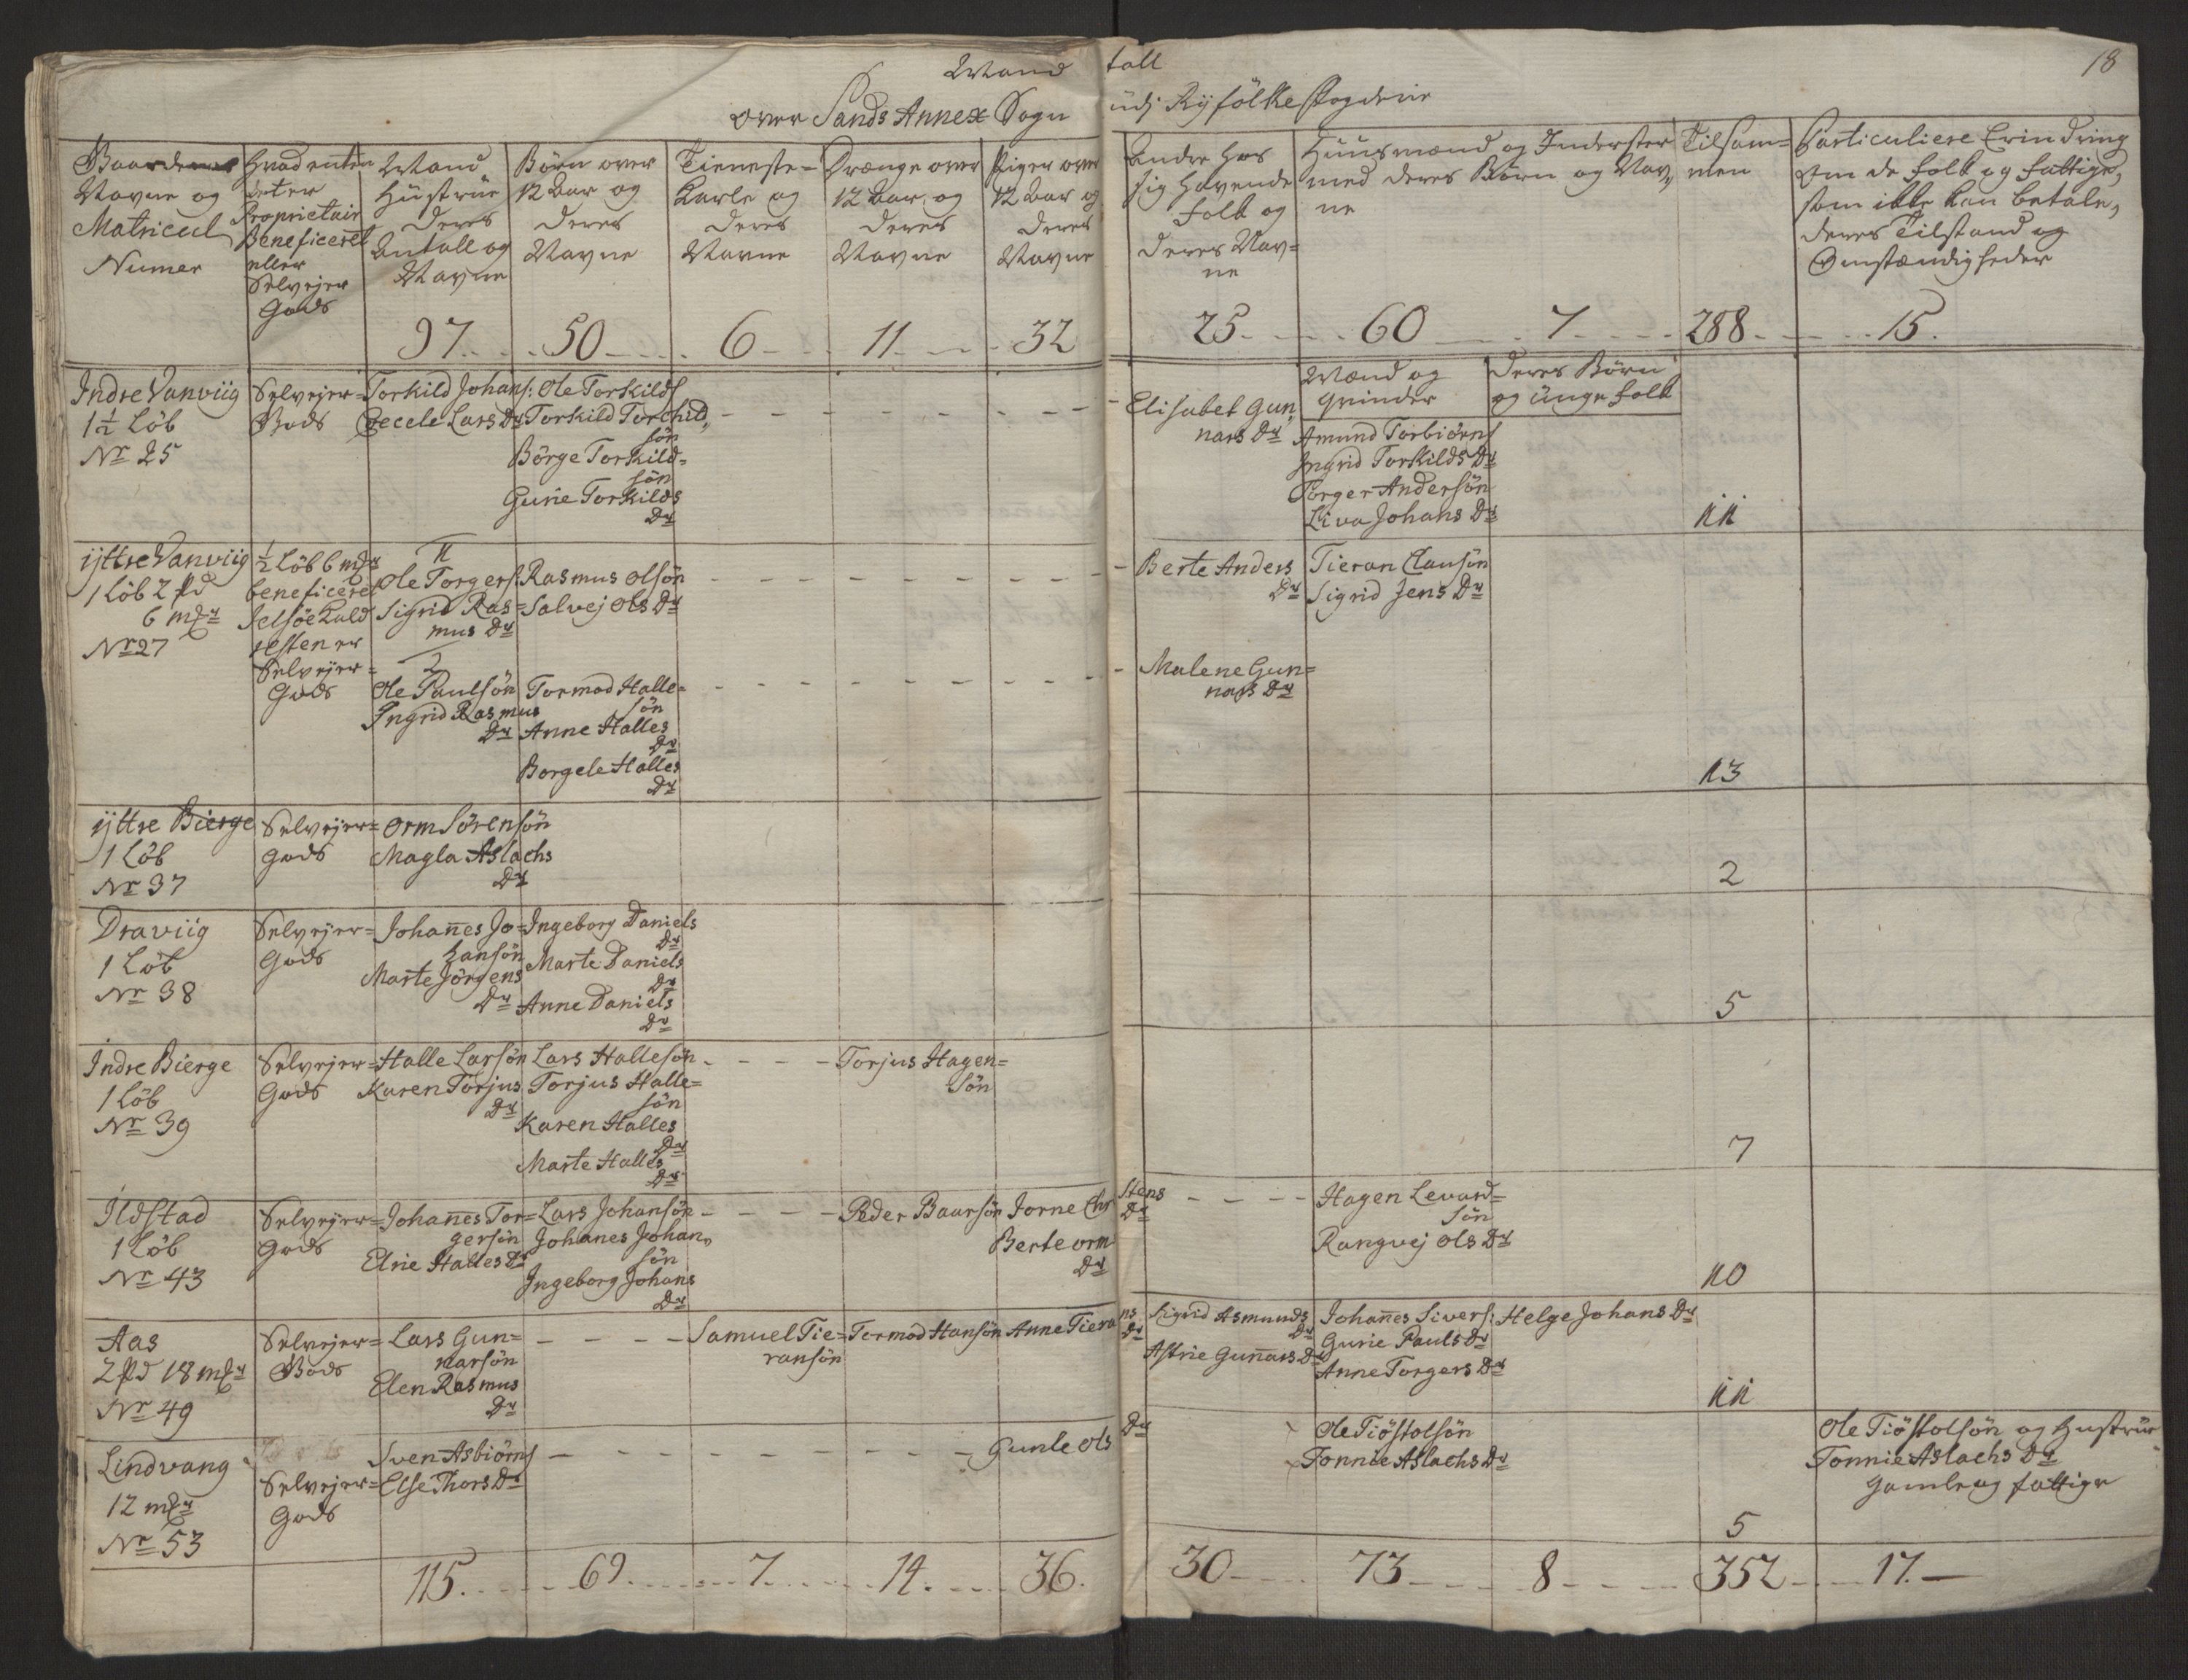 Mand tall
18
over Sands Annex Sogn udj Ryfölke Fogderie
Gaardenes
Navne og
Matricul
Numer
Hvad enten
det er
Proprietair
Beneficeret
eller
Selvejer
Gods
Mand
Hustrue
deres
Antall og
Navne
Börn over
12 Aar og
deres
Navne
Tieneste=
Karle og
deres
Navne
Drænge over
12 Aar og
deres
Navne
Piger over
12 Aar og
deres
Navne
Andre hos
sig havende
folk og
deres Nav=
ne
Huusmænd og Inderster
med deres Börn og Nav,
ne
Tilsam=
men
Particuliere Erindring
om de folk og fattige,
som ikke kan betale,
deres Tilstand og
Omstændigheder
97 50 6 11 32 25 60 7 288 15.
Mænd og
Qvinder
deres Börn
og Unge folk
Indre Vanviig
1½ Löb
Nr 25
Selvejer=
Gods
Torkild Johans:
Cecele Lars Dr
Ole Torkilds
Torkild Torchild,
sön
Börge Torkild=
sön
Gurie Torkilds
Dr
Elisabet Gun,
nars Dr
Amund Torbiörns
Ingrid Torkilds Dr
Torger Andersön
Liva Johans Dr
11
ÿttre Vanviig
1 Löb 2 Pd
6 mkr
Nr 27
½ Löb 6 mkr
beneficeret
Jelsöe
resten er
Selvejer=
Gods
1
Ole Torgers:
Sigrid Ras=
mus Dr
Rasmus Olsön
Salvej Ols Dr
Berte Anders
Dr
Tieran Clausön
Sigrid Jens Dr
2
Ole Paulsön
Ingrid Rasmus
Dr
Tormod Halle=
sön
Anne Halles
Dr
Borgele Halles
Dr
Malene Gun=
nars Dr
13
ÿttre Bierge
1 Löb
Nr 37
Selvejer=
Gods
Orm Sörensön
Magla Aslachs
Dr
2
Draviig
1 Löb
Nr 38
Selvejer=
Gods
Johannes Jo=
hansön
Marte Jörgens
Dr
Ingeborg Daniels
Dr
Marte Daniels
Dr
Anne Daniels
Dr
5
Indre Bierge
1 Löb
Nr 39
Selvejer=
Gods
Halle Larsön
Karen Torjus
Dr
Lars Hallesön
Torjus Halle=
sön
Karen Halles
Dr
Marte Halles
Dr
Torjus Hagen=
sön
7
Ildstad
1 Löb
Nr 43
Selvejer=
Gods
Johannes Tor=
gersön
Elrie Halles Dr
Lars Johansön
Johanes Johan,
sön
Ingeborg Johans
Dr
Peder Baarsön
Jorne Chrstens
Dr
Berte Orm
Dr
Hagen Levard=
sön
Rangvej Ols Dr
10
Aas
2 Pd 18 mkr
Nr 49
Selvejer=
Gods
Lars Gun=
narsön
Elen Rasmus
Dr
Samuel Tie=
ransön
Tormod Hansön
Anne Tierans
Dr
Sigrid Asmunds
Dr
Astrie Gunnars Dr
Johannes Sivers:
Gurie Pauls Dr
Anne Torgers Dr
Helge Johans Dr
11
Lindvang
12 mkr
Nr 53
Selvejer=
Gods
Sven Asbiörns
Else Thors Dr
Gunle Ols
Dr
Ole Tiöstolsön
Tonnie Aslachs Dr
5
Ole Tiöstolsön og Hustrue
Tonnie Aslachs Dr
Gamle og fattige
115. 69 7 14 36. 30 73 8 352 17.